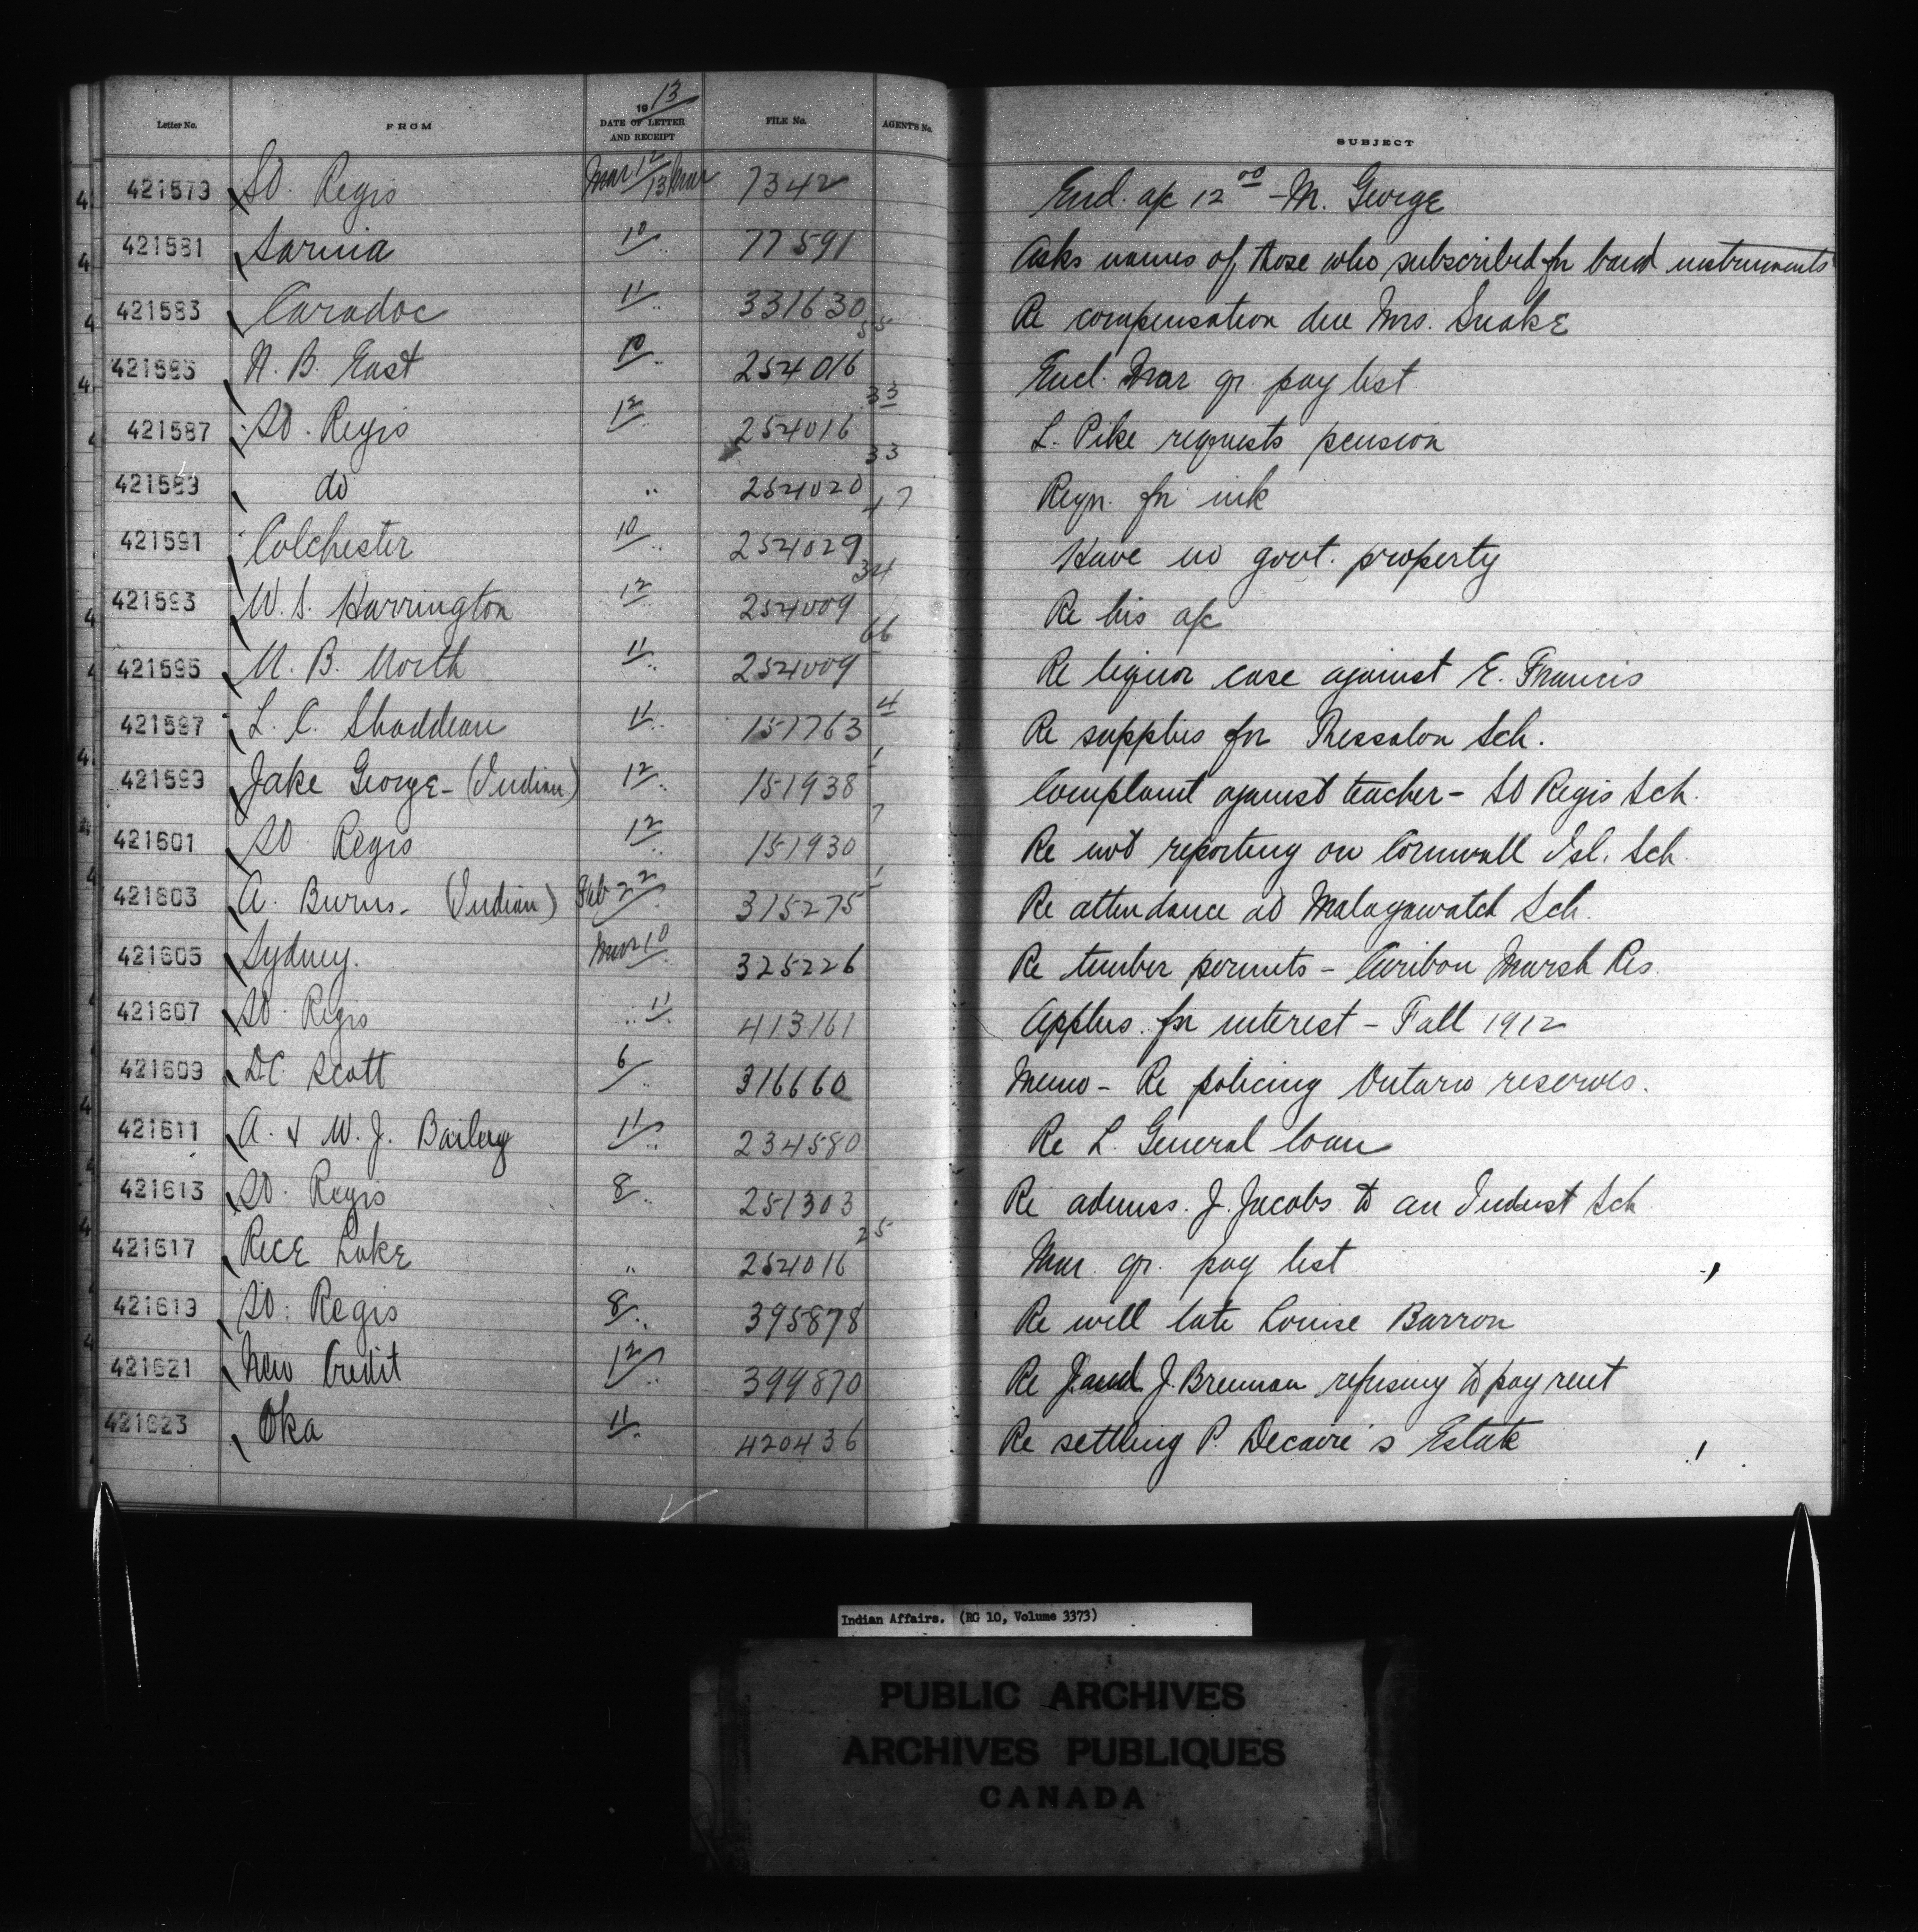 Letter No. FROM 1913 DATE OF LETTER AND RECEIPT FILE No. AGENT'S No. SUBJECT
421579 St. Regis Mar 12/13 Mar 7342 Encl. a/c 12 00 - M. George
421581 Sarnia 10/.. 77591 Asks names of those who subscribed for band instruments
421583 Caradoc 11/.. 331630 Re compensation due Mrs. Snake
421585 N. B. East 10/.. 254016 55 Encl. Mar qr. pay list
421587 St. Regis 12/.. 254016 33 L. Pike requests pension
421589 do .. 254020 33 Reqn. for ink
421591 Colchester 10/.. 254029 47 Have no govt. property
421593 W. S. Harrington 12/.. 254009 34 Re his a/c
421595 N. B. North 11/.. 254009 66 Re liquor case against E. Francis
421597 L. C. Shaddeau 11/.. 151763 4 Re supplies for Thessalon Sch.
421599 Jake George - (Indian) 12/.. 151938 1 Complaint against teacher - St Regis Sch.
421601 St. Regis 12/.. 151930 7 Re not reporting on Cornwall Isl. Sch
421603 A. Burns. (Indian) Feb 22/.. 315275 1 Re attendance at Malagawatch Sch.
421605 Sydney. Mar 10/.. 325226 Re timber permits - Caribou Marsh Res.
421607 St. Regis .. 11/.. 413161 Applns. for interest - Fall 1912
421609 D.C. Scott 6/.. 316660 Memo - Re policing Ontario reserves.
421611 A. & W. J. Bailey 11/.. 234580 Re L. General loan
421613 St. Regis 8/.. 251303 Re admiss. J. Jacobs to an Indust Sch
421617 Rice Lake .. 254016 25 Mar. qr. pay list
421619 St. Regis 8/.. 395878 Re will late Louise Barron
421621 New Credit 12/.. 399870 Re J. and J. Brennan refusing to pay rent
421623 Oka 11/.. 420436 Re settling P. Decaire's Estate
Indian Affairs. (RG 10, Volume 3373)
PUBLIC ARCHIVES
ARCHIVES PUBLIQUES
CANADA